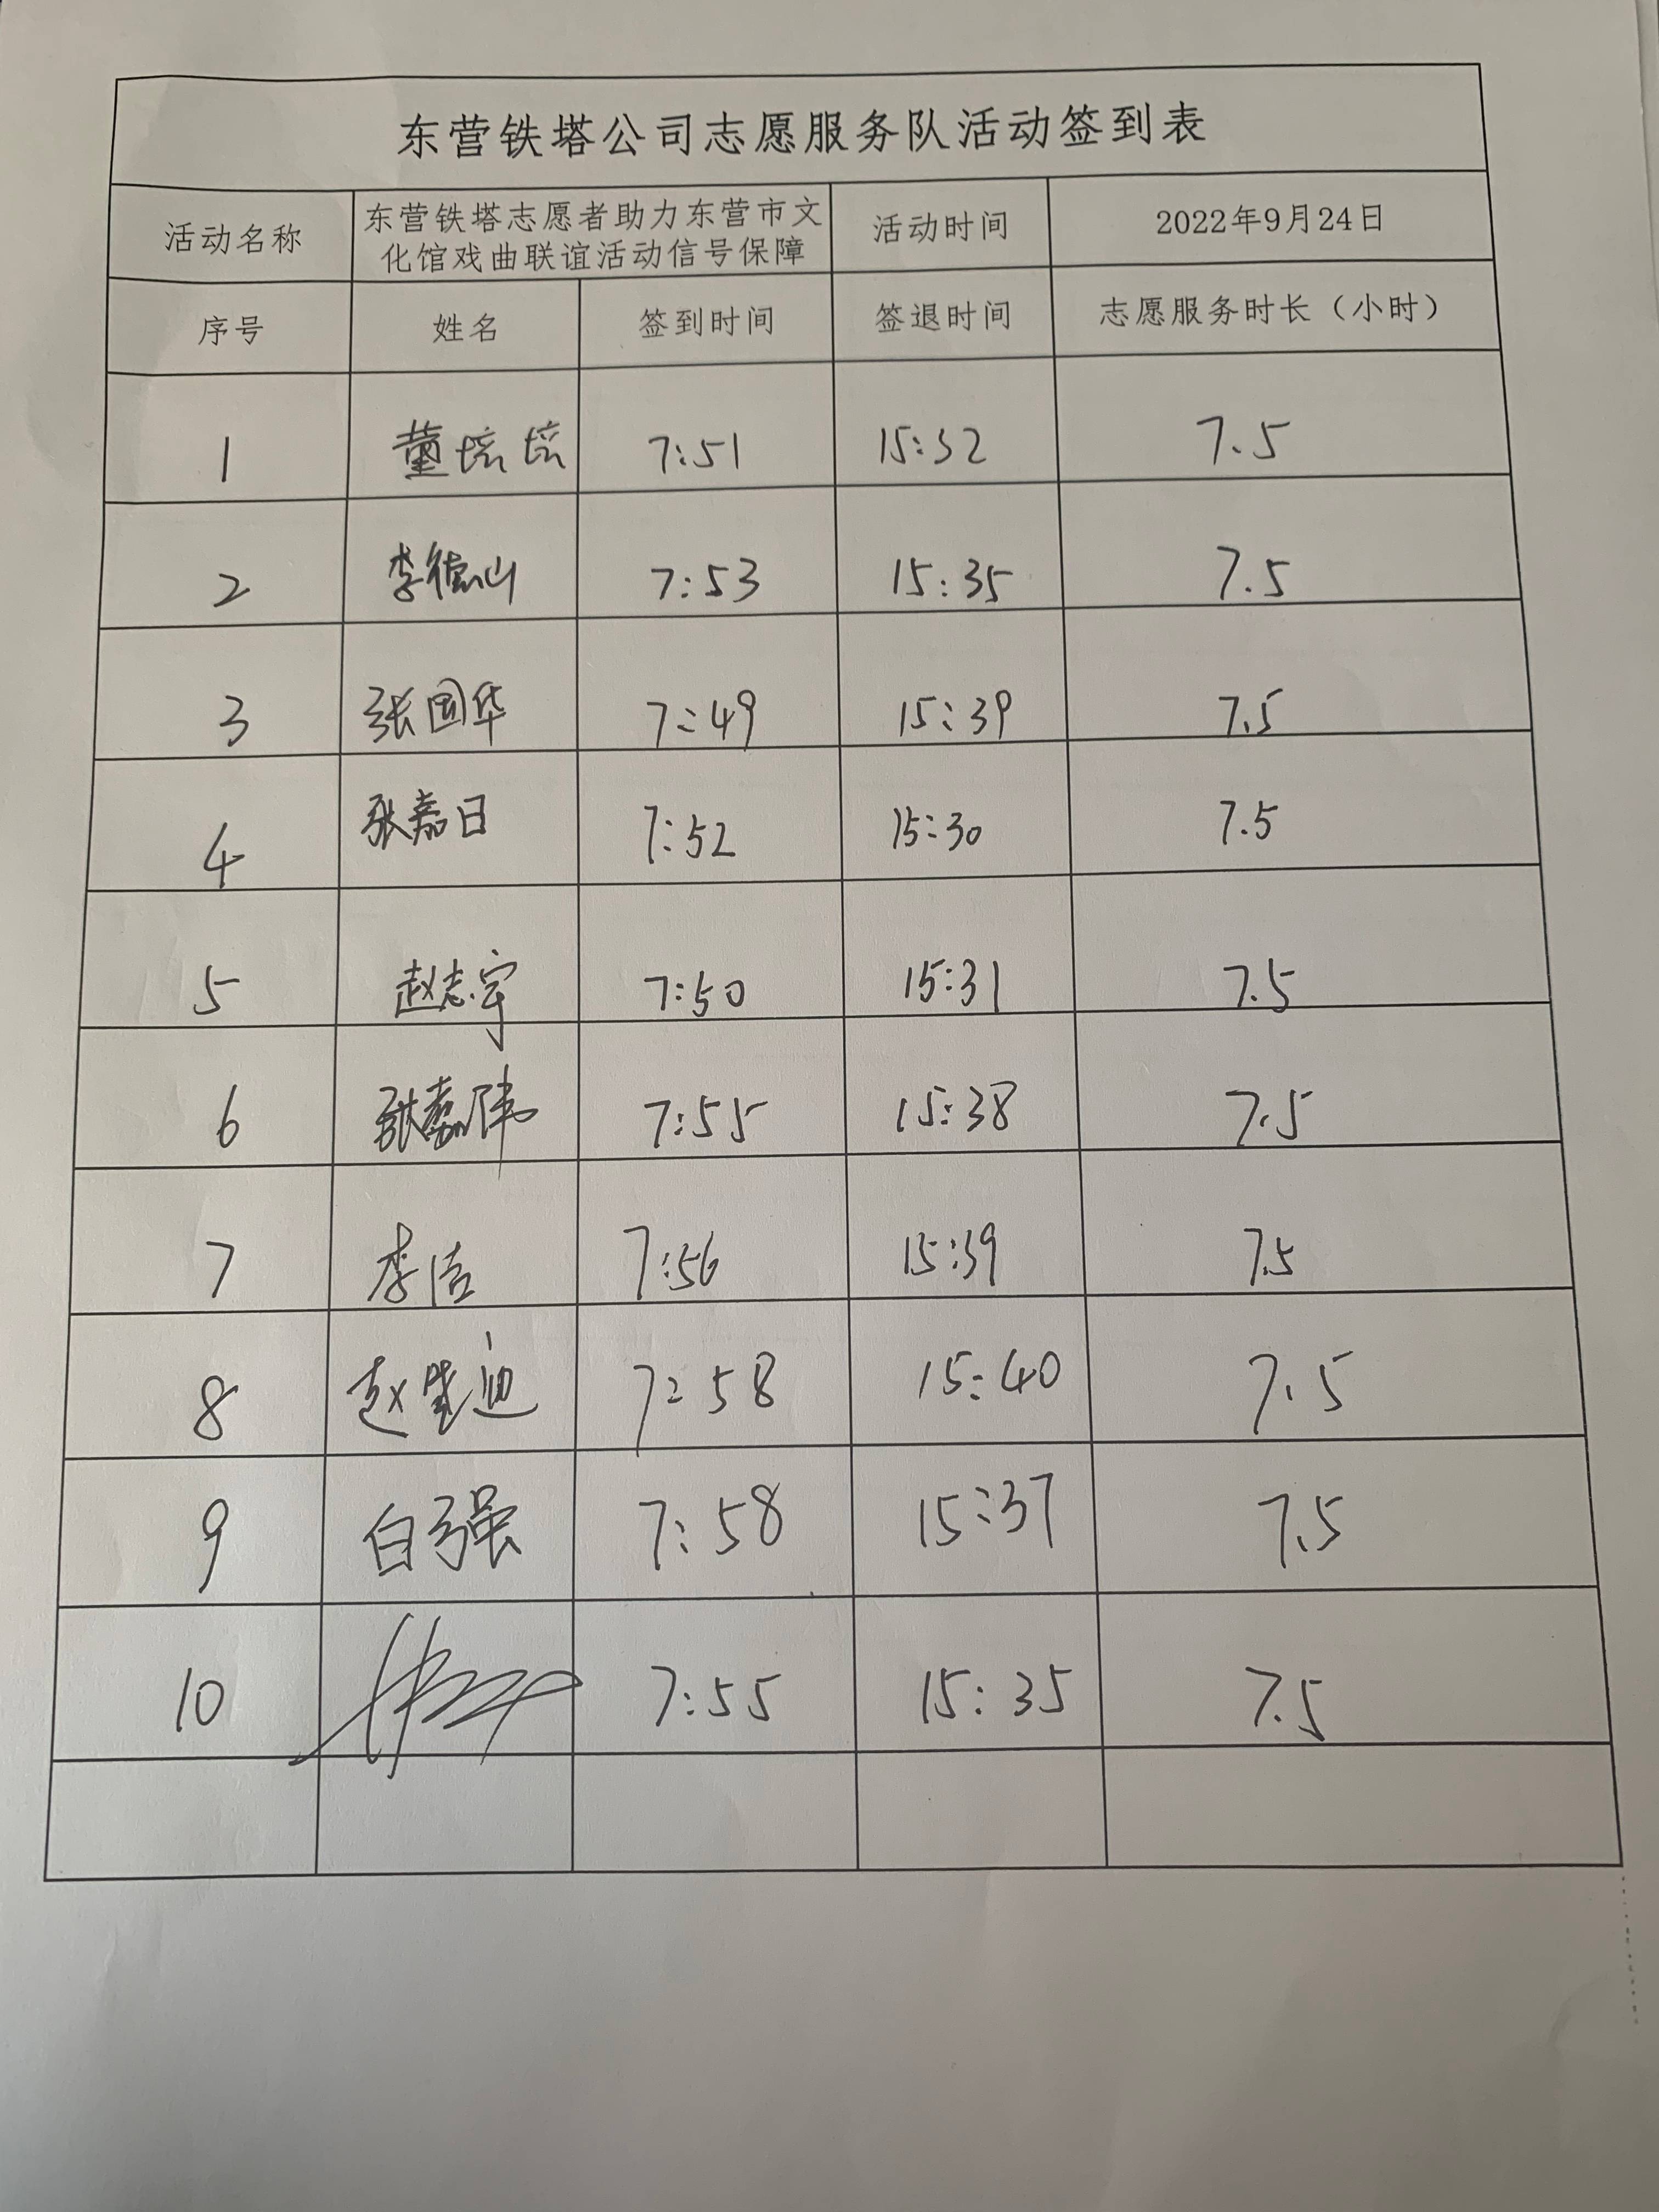 东营铁塔公司志愿服务队活动签到表
活动名称 东营铁塔志愿者助力东营市文化馆戏曲联谊活动信号保障 活动时间 2022年9月24日
序号 姓名 签到时间 签退时间 志愿服务时长（小时）
1 董培培 7:51 15:32 7.5
2 李德山 7:53 15:35 7.5
3 张国华 7:49 15:39 7.5
4 张嘉日 7:52 15:30 7.5
5 赵志宇 7:50 15:31 7.5
6 张嘉伟 7:55 15:38 7.5
7 李洁 7:56 15:39 7.5
8 7:58 15:40 7.5
9 白强 7:58 15:37 7.5
10 7:55 15:35 7.5